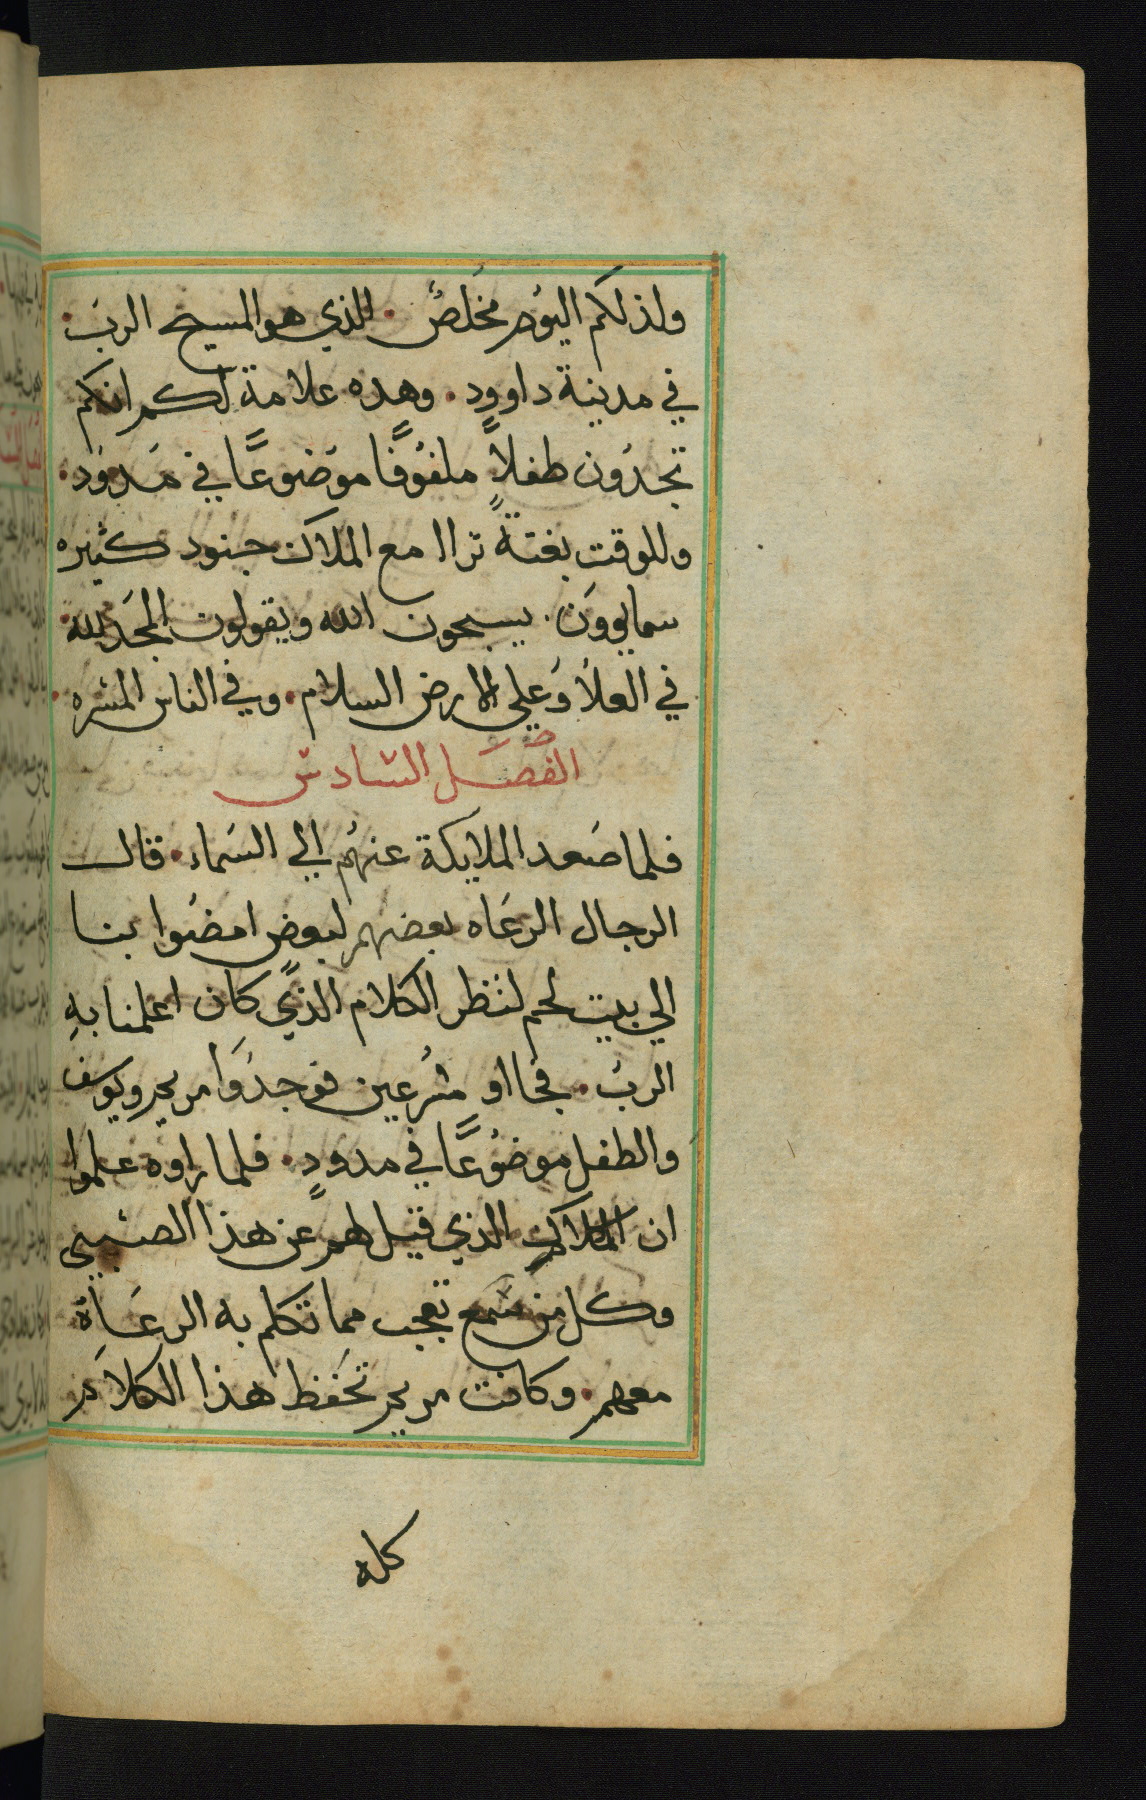 ولد لكم اليوم مخلص. الذي هو المسيح الرب.
في مدينة داوود. وهده علامة لكم انكم
تجدون طفلاً ملفوفًا موضوعًا في مدود.
وللوقت بغتةً تراا مع الملاك جنود كثيره
سمايوون. يسبحون الله ويقولون المجد لله
في العلا وعلي الارض السلام. وفي الناس المسره.
الفصل السادس
فلما صعد الملايكة عنهم الي السماء. قال
الرجال الرعاه بعضهم لبعض امضوا بنا
الي بيت لحم لننظر الكلام الذي كان اعلمنا به
الرب. فجااو مسرعين فوجدوا مريم ويوسف
والطفل موضوعًا في مدودٍ. فلما راوه علموا
ان الكلام الذي قيل لهم عن هذا الصبي
وكل من سمع تعجب مما تكلم به الرعاة
معهم. وكانت مريم تحفظ هذا الكلام
كله